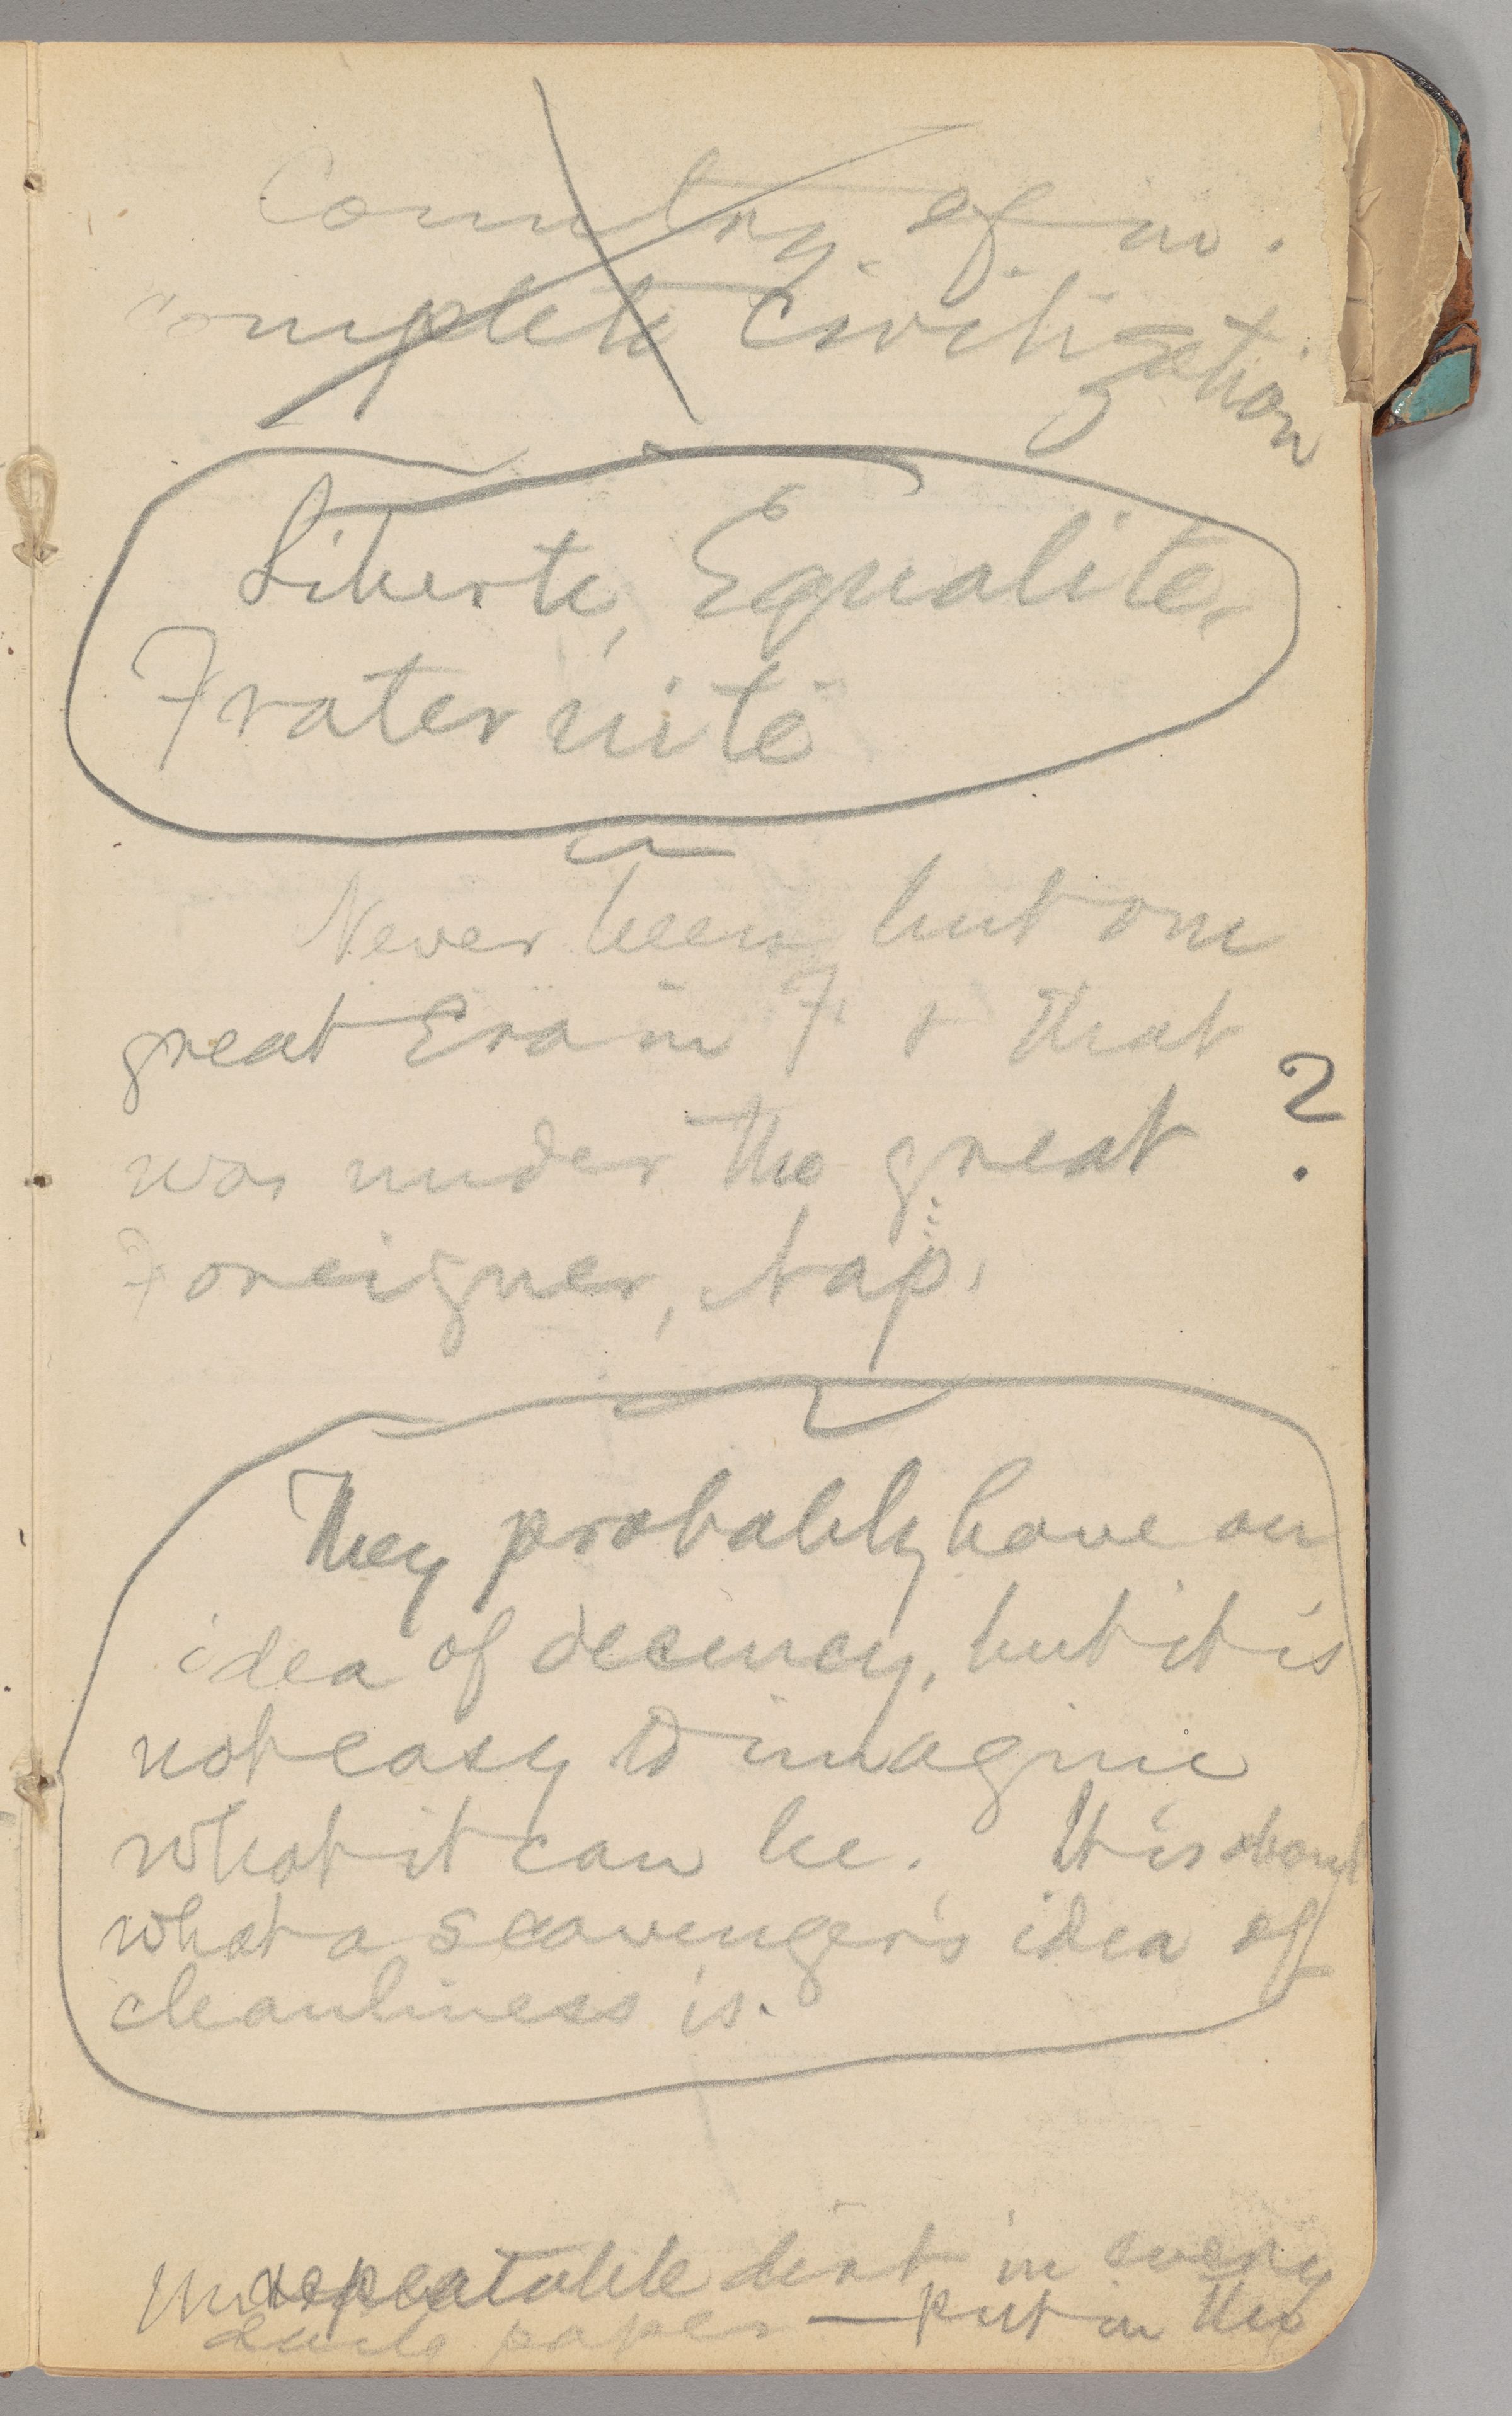 Country of in.
complete civilization
Liberte, Equalité,
Fraternité
Never been but one
great Era in F. & that
was under the great
Foreigner, Nap.
?
They probably have an
idea of decency, but it is
not easy to imagine
what it can be. It is about
what a scavenger's idea of
cleanliness is.
Unrepeatable dirt in every
daily paper — put in the